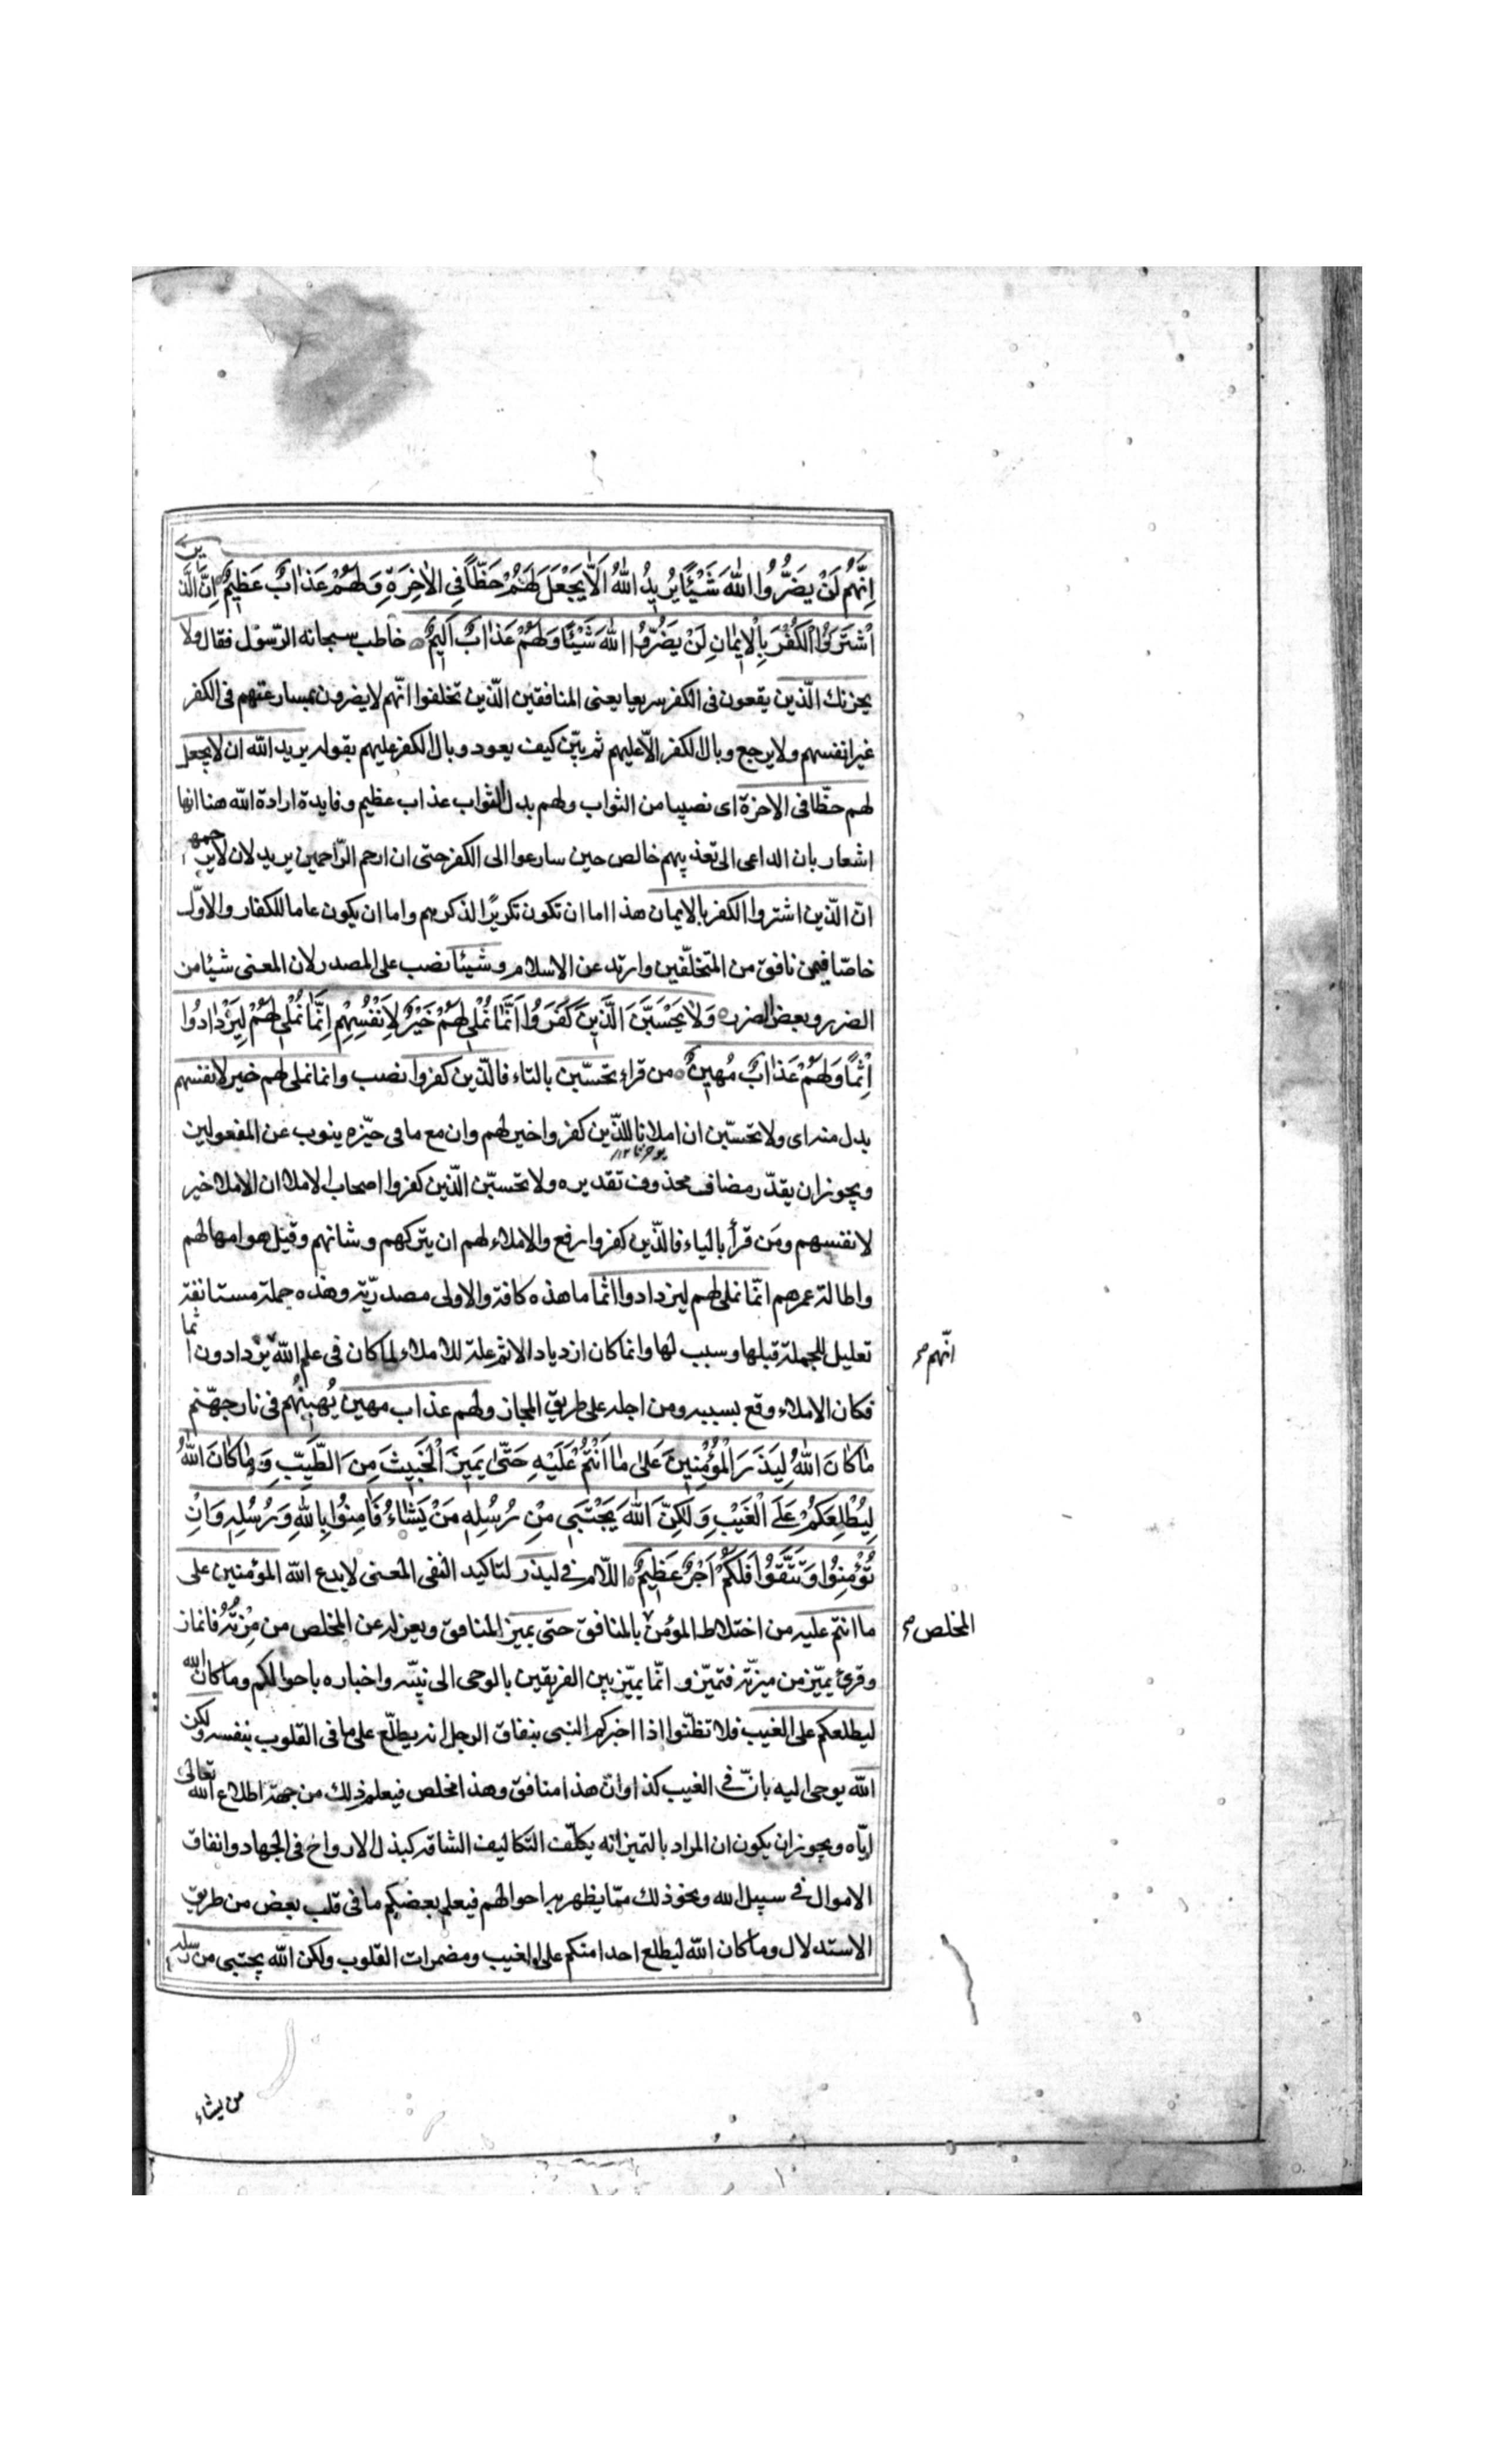 اِنَّهُمْ لَنْ يَضُرُّوا اللّٰهَ شَيْئًا يُرِيدُ اللّٰهُ اَلَّا يَجْعَلَ لَهُمْ حَظًّا فِي الْاٰخِرَةِ وَلَهُمْ عَذَابٌ عَظِيمٌ اِنَّ الَّذِينَ
اشْتَرَوُا الْكُفْرَ بِالْاِيمَانِ لَنْ يَضُرُّوا اللّٰهَ شَيْئًا وَلَهُمْ عَذَابٌ اَلِيمٌ خاطب سبحانه الرّسول فقال ولا
يحزنك الّذين يقعون فى الكفر سريعا يعنى المنافقين الّذين تخلفوا انّهم لا يضرون بمسارعتهم فى الكفر
غير انفسهم ولا يرجع وبال الكفر الاّ عليهم ثم بيّن كيف يعود وبال الكفر عليهم بقوله يريد الله ان لا يجعل
لهم حظّا فى الاخرة اى نصيبا من الثواب ولهم بدل الثواب عذاب عظيم وفايدة ارادة الله هنا انها
اشعار بان الداعى الى تعذيبهم خالص حين سارعوا الى الكفر حتى ان ارحم الرّاحمين يريد لان لا يرحمهم
انّ الّذين اشتروا الكفر بالايمان هذا اما ان تكون تكريرًا لذكرهم واما ان يكون عاما للكفار والاوّل
خاصّا فيمن نافق من المتخلّفين وارتد عن الاسلام وشيئا نصب على المصدر لان المعنى شيئا من
الضرر وبعض الضرر وَلَا يَحْسَبَنَّ الَّذِينَ كَفَرُوا اَنَّمَا نُمْلِي لَهُمْ خَيْرٌ لِاَنْفُسِهِمْ اِنَّمَا نُمْلِي لَهُمْ لِيَزْدَادُوا
اِثْمًا وَلَهُمْ عَذَابٌ مُهِينٌ من قراء تحسبّن بالتاء فالّذين كفروا نصب وانما نملى لهم خير لانفسهم
بدل منه اى ولا تحسبّن ان املائنا للّذين كفروا خير لهم وان مع ما فى حيّزه ينوب عن المفعولين
ويجوز ان يقدّر مضاف محذوف تقديره ولا تحسبّن الّذين كفروا اصحاب الاملاء ان الاملاء خير
لانفسهم ومَن قرأ بالياء فالّذين كفروا رفع والاملاء لهم ان يتركهم وشانهم وقيل هو امهالهم
واطالة عمرهم انّما نملى لهم ليزدادوا اثما ما هذه كافة والاولى مصدريّة وهذه جملة مستانفة
تعليل للجملة قبلها وسبب لها وانما كان ازدياد الاثم علة للاملاء لما كان فى علم الله يزدادون اثما
انّهم
فكان الاملاء وقع بسببه ومن اجله على طريق المجاز ولهم عذاب مهين يُهينُهُم فى نار جهنّم
مَا كَانَ اللّٰهُ لِيَذَرَ الْمُؤْمِنِينَ عَلٰى مَا اَنْتُمْ عَلَيْهِ حَتّٰى يَمِيزَ الْخَبِيثَ مِنَ الطَّيِّبِ وَمَا كَانَ اللّٰهُ
لِيُطْلِعَكُمْ عَلَى الْغَيْبِ وَلٰكِنَّ اللّٰهَ يَجْتَبِي مِنْ رُسُلِهِ مَنْ يَشَاءُ فَاٰمِنُوا بِاللّٰهِ وَرُسُلِهِ وَاِنْ
تُؤْمِنُوا وَتَتَّقُوا فَلَكُمْ اَجْرٌ عَظِيمٌ اللّام فى ليذر لتاكيد النفى المعنى لا يدع الله المؤمنين على
ما انتم عليه من اختلاط المؤمن بالمنافق حتى يميز المنافق ويعزله عن المخلص من مِزْتُهُ فانماز
المخلص
وقرئ يميّز من ميزّته فتميّز وانّما يميّز بين الفريقين بالوحى الى نبيّه واخباره باحوالكم وما كان الله
ليطلعكم على الغيب فلا تظنّوا اذا اخبركم النبى بنفاق الرجل انه يطلّع على ما فى القلوب بنفسه ولكن
الله يوحى اليه بانّ فى الغيب كذا وانّ هذا منافق وهذا مخلص فيعلم ذلك من جهة اطلاع الله تعالى
ايّاه ويجوز ان يكون ان المراد بالتميز انه يكلّف التكاليف الشاقة كبذل الارواح فى الجهاد وانفاق
الاموال فى سبيل الله ونحو ذلك ممّا يظهر به احوالهم فيعلم بعضكم ما فى قلب بعض من طريق
الاستدلال وما كان الله ليطلع احدا منكم على الغيب ومضمرات القلوب ولكن الله يجتبى من رسله
من يشاء